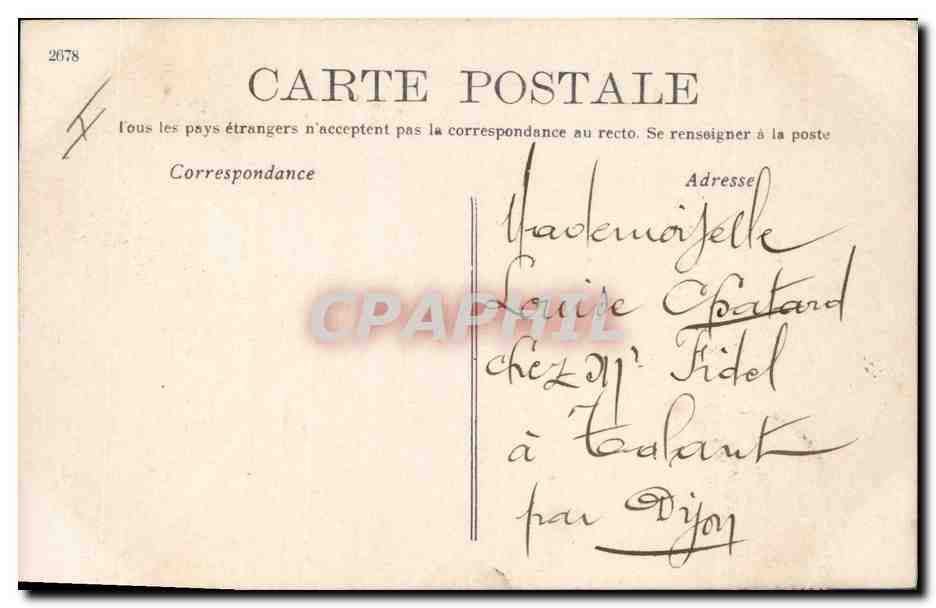 2678
CARTE POSTALE
Tous les pays étrangers n'acceptent pas la correspondance au recto. Se renseigner à la poste
Correspondance
Adresse
Mademoiselle
Louise
chez Mr Fidel
à Talant
par Dijon
CPAPHIL